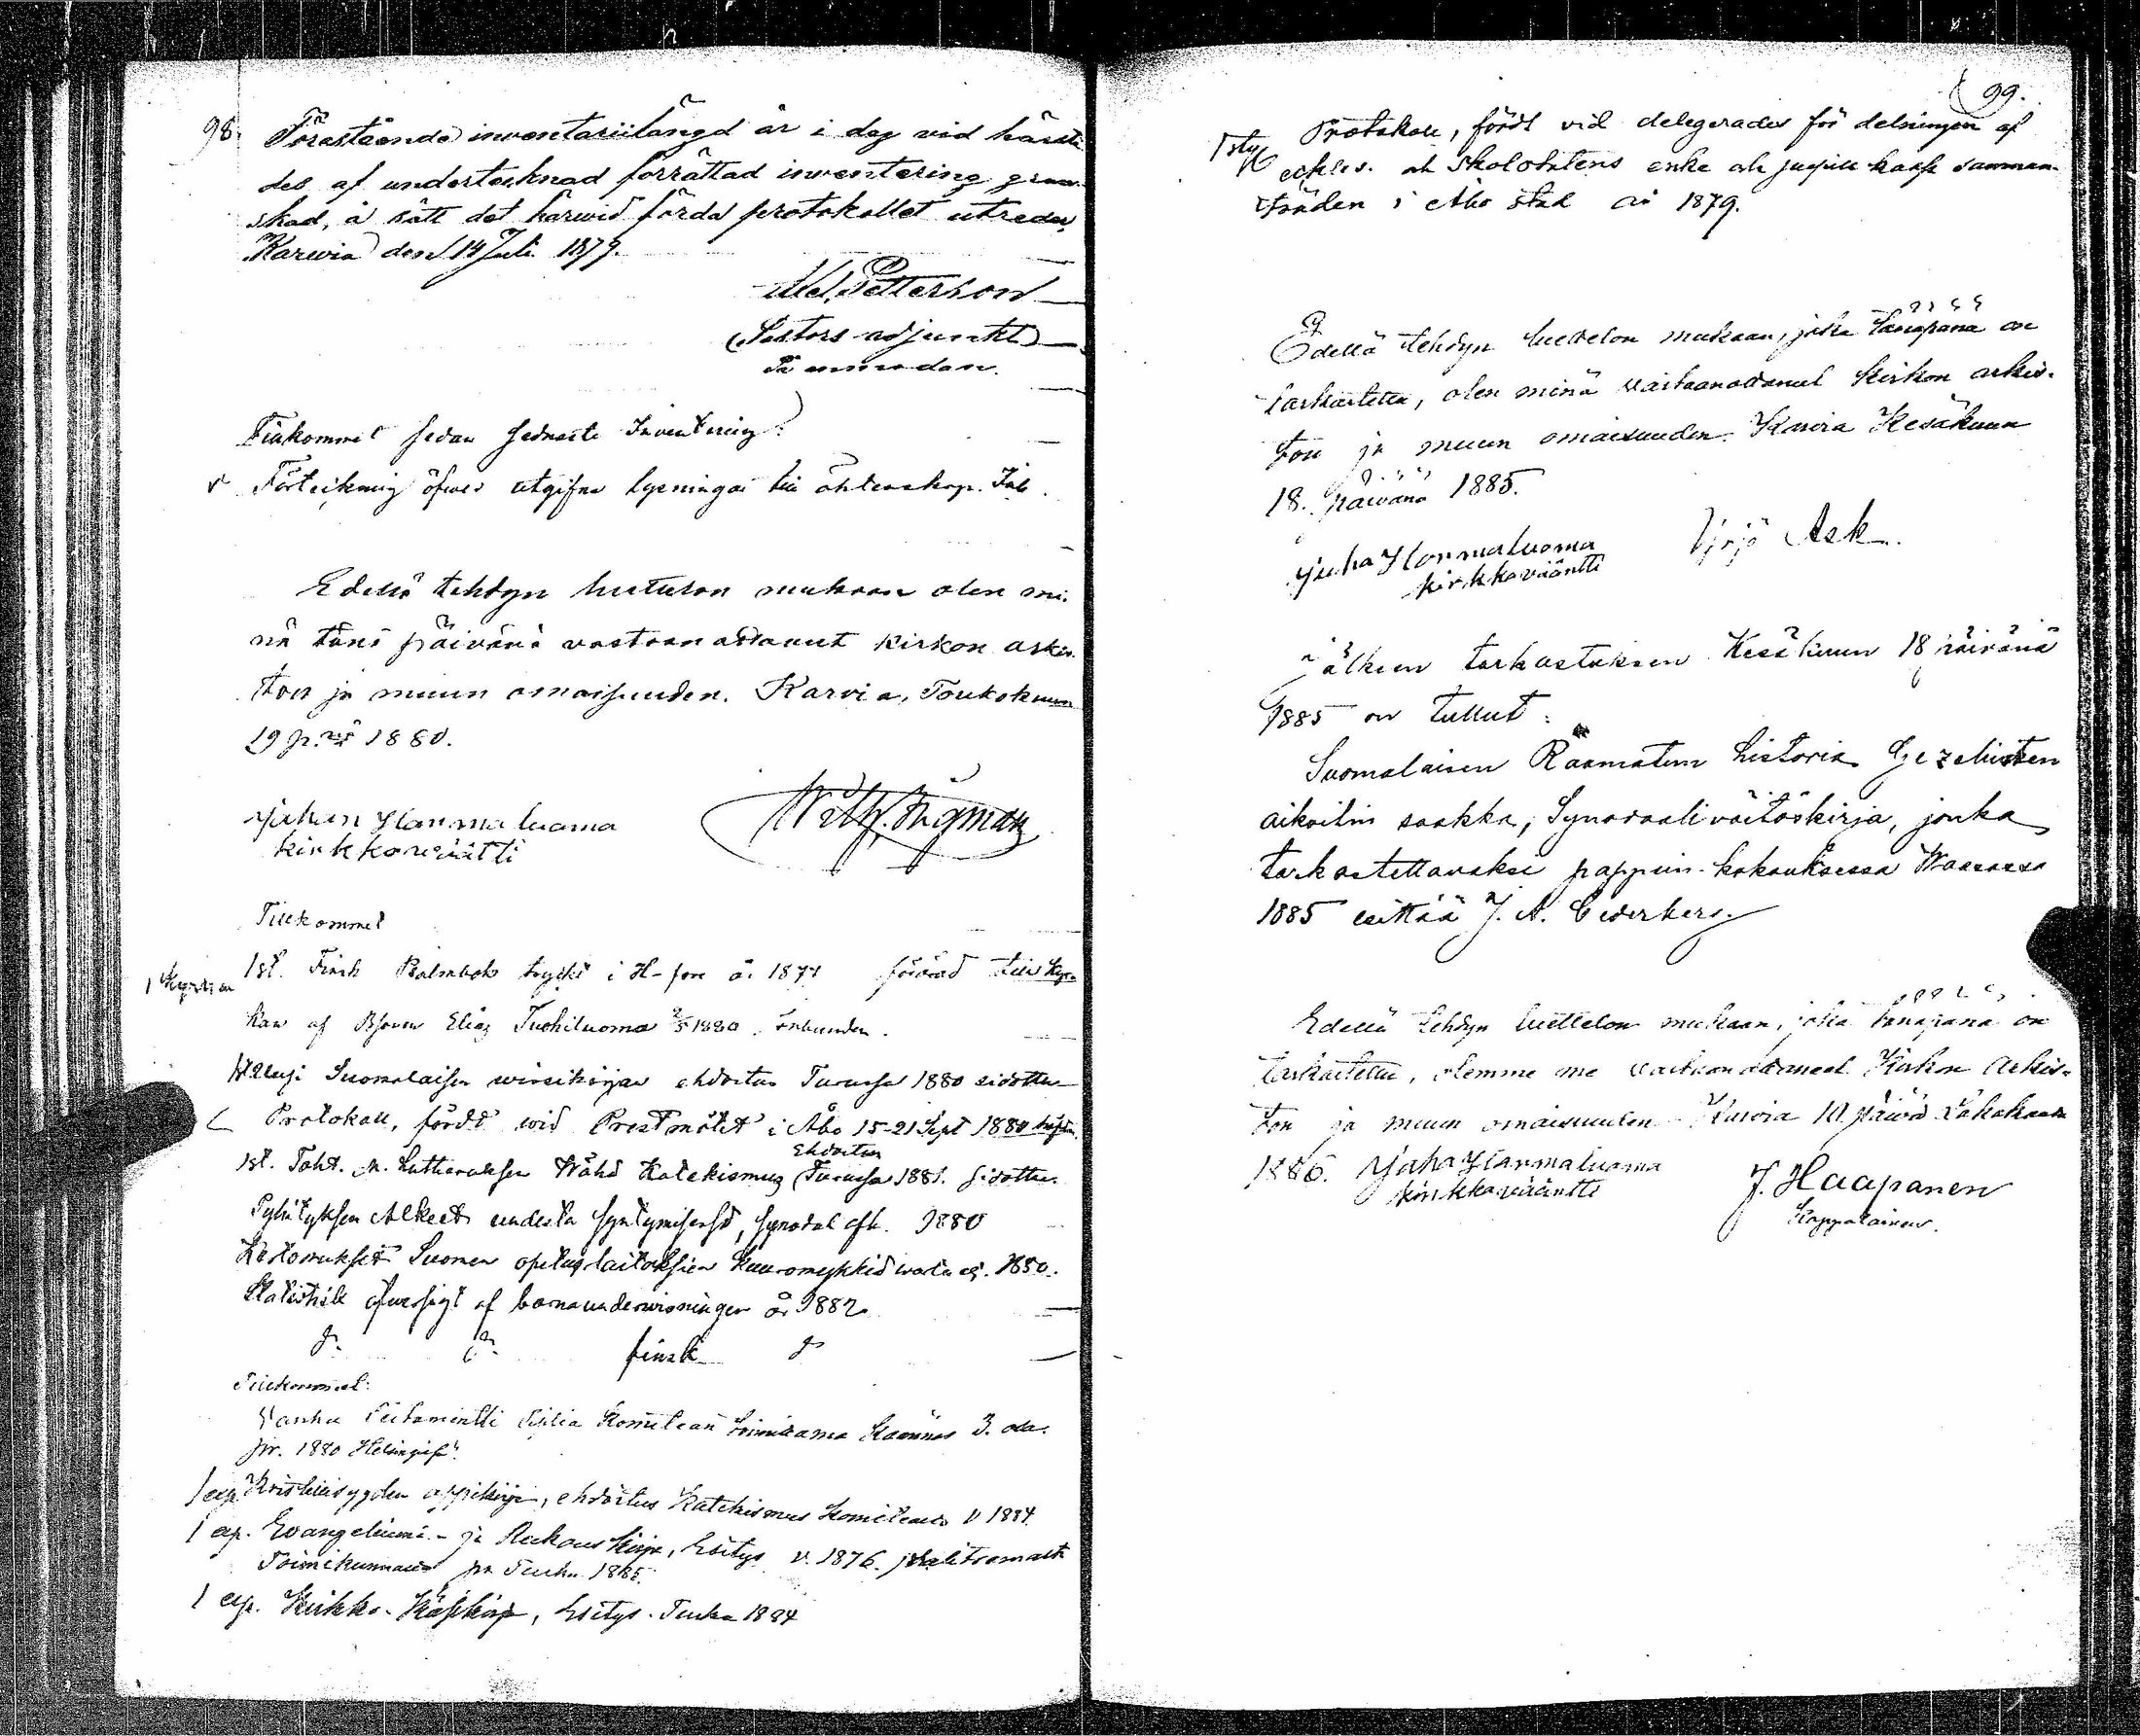 98.
Förestående inventariilängd är i dag vid härstä-
des af undertecknad förrättad inventering gran-
skad, å sätt det härwid förda protokollet utredes,
Karvia den 14 Juli 1879.
Petterson
Pastors adjunkt
Tillkommet sedan sednaste Inventering:
Förteckning öfwer utgifna lysningar till äktenskap.
Edellä tehdyn luetelon mukaan olen mi-
nä tänä päivänä vastaanottanut Kirkon arkis-
ton ja muun omaisuuden. Karvia, Toukokuun
19 p:nä 1880.
Juhan Hanmaluoma
kirkkoväätti
Ingman
Tillkommet
1 st. Finsk Psalmbok tryckt i H-fors år 1874 förärad till Kyr-
kan af Elias Tuohiluoma 1880. Inbunden.
Suomalaisen wirsikirjan ehdoitus Turussa 1880 sidottu
Protokoll, fördt wid Prestmötet i Åbo 15-21 Sept 1880
Ehdoitus
1 st. Toht. M. Lutheruksen Wähä Katekismus Turussa 1881. sidottu
Pyhityksen Alkeet uudesta syntymisessä, synodal afh. 1880
Kertomukset Suomen opetuslaitoksien
Statistisk öfwersigt af barnaunderwisningen år 1882
finsk
Tillkommet:
Vanha Testamentti Komitean toimittama Käännös 3. osa.
1880
1 exp. Kristillisyyden oppikirja, ehdoitus Katekismus Komitealta v 1884.
1 exp. Evangeliumi- ja Rukous Kirja, Esitys v. 1876.
Toimikunnalta Turku 1885.
1 exp. Kirkko-Käsikirja, Esitys. Turku 1884
99.
Protokoll, fördt vid delegerades för delningen af
eckles. och Skolstatens enke och pupill kassa samman-
träden i Åbo stad år 1879.
Edellä tehdyn luettelon mukaan, joka tänäpänä on
tarkastettu, olen minä vastaanottanut Kirkon arkis-
ton ja muun omaisuuden. Karvia Kesäkuun
18. päivänä 1885.
Juha Hanmaluoma
kirkkovääntti
Yrjö Ask.
Jälkeen tarkastuksen Kesäkuun 18 päivänä
1885 on tullut:
Suomalaisen Raamatun historia Gezeliusten
aikoihin saakka, Synodaali väitöskirja, jonka
tarkastettavaksi pappein-kokouksessa Waasassa
1885 esittää J. A. Cederberg.
Edellä tehdyn luettelon mukaan, joka tänäpänä on
tarkastettu, olemme me vastaanottaneet Kirkon Arkis-
ton ja muun omaisuuden Karvia 10. päivä Lokakuun
1886. Juha Hanmaluoma
kirkkovääntti
J. Haapanen
Kappalainen.